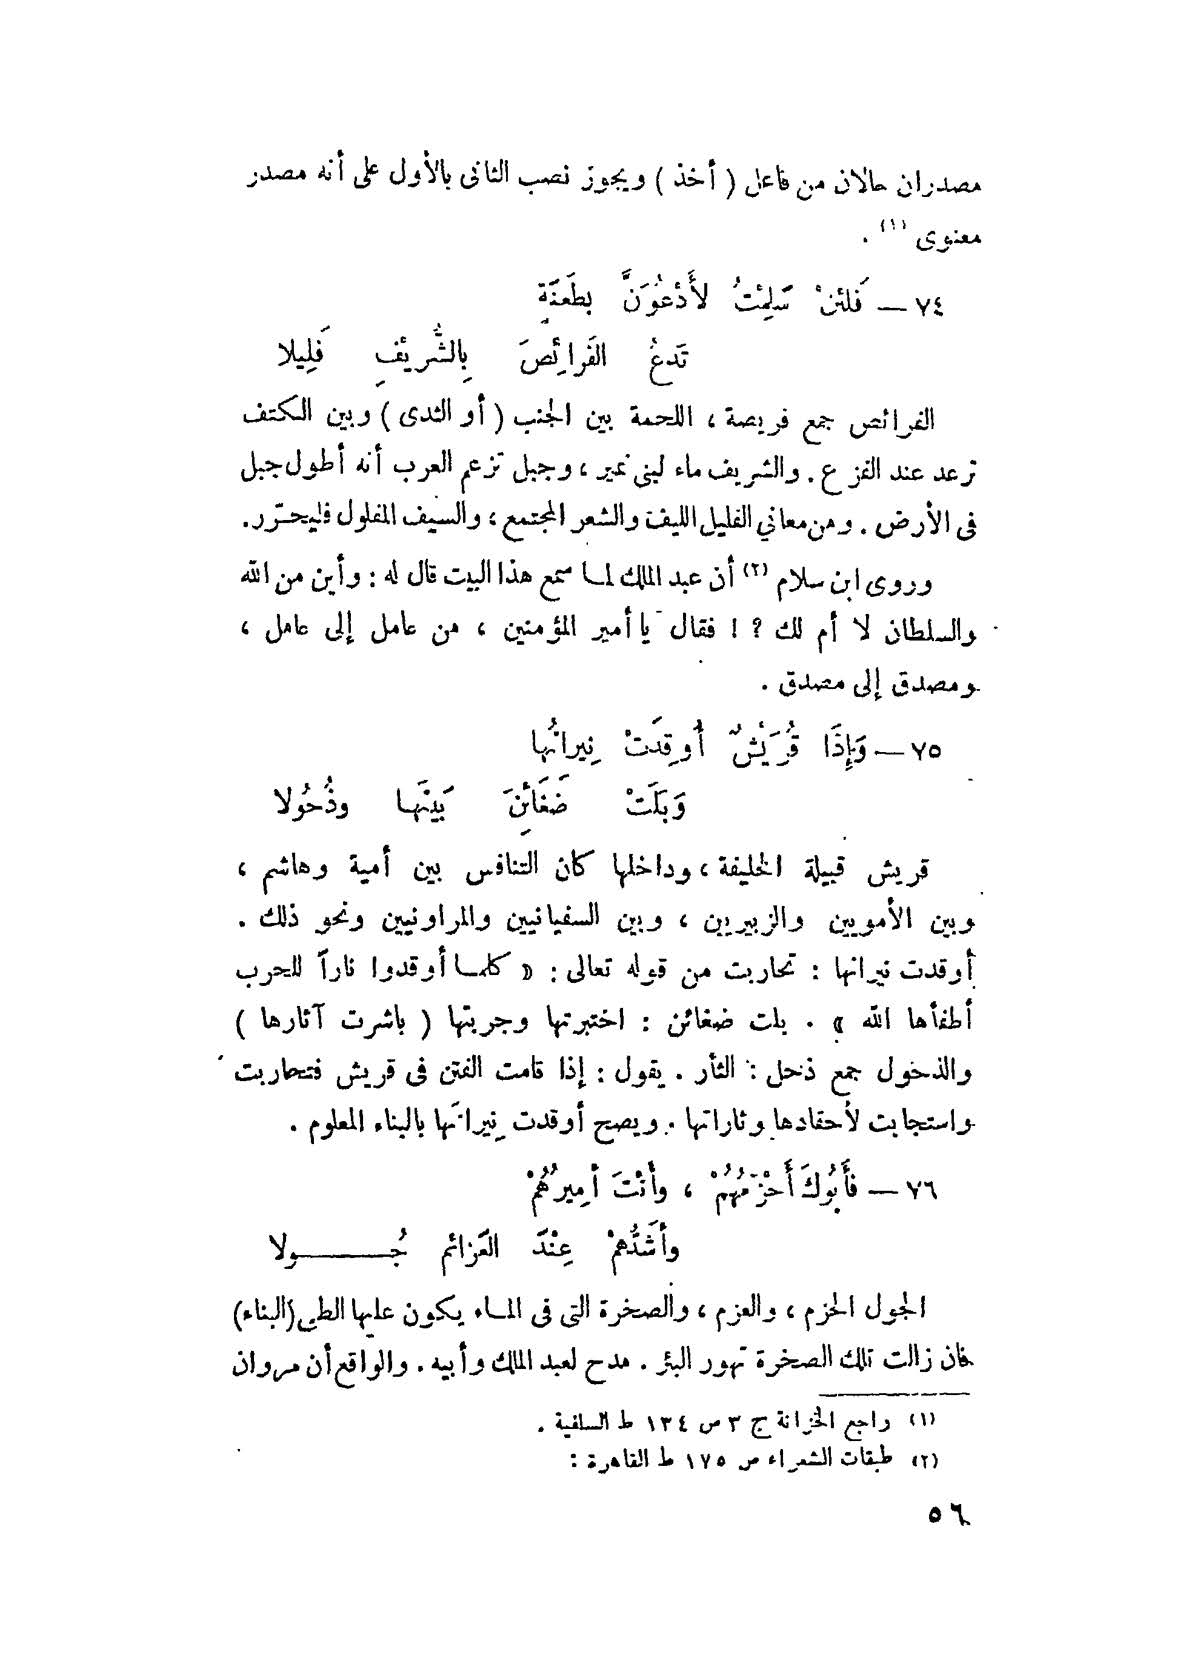 مصدران حالان من فاعل ( أخذ ) ويجوز نصب الثانى بالأول على أنه مصدر
معنوى (١) .
٧٤ — فَلئنْ سَلِمْتُ لأَدْعُوَنَّ بطَعنَةٍ
تَدعُ الفَرائِصَ بِالشُّرَيْفِ فَلِيلا
الفرائص جمع فريصة ، اللحمة بين الجنب ( أو الثدى ) وبين الكتف
ترعد عند الفزع . والشريف ماء لبنى نمير ، وجبل تزعم العرب أنه أطول جبل
فى الأرض . ومن معاني الفليل الليف والشعر المجتمع ، والسيف المفلول فليحرّر .
وروى ابن سلام (٢) أن عبد الملك لما سمع هذا البيت قال له : وأين من الله
والسلطان لا أم لك ؟ ! فقال يا أمير المؤمنين ، من عامل إلى عامل ،
ومصدق إلى مصدق .
٧٥ — وَإِذَا قُرَيْشٌ أُوقِدَتْ نِيرانُها
وَبَلَتْ ضَغَائِنَ بَينَها وذُحُولا
قريش قبيلة الخليفة ، وداخلها كان التنافس بين أمية وهاشم ،
وبين الأمويين والزبيريين ، وبين السفيانيين والمراونيين ونحو ذلك .
أوقدت نيرانها : تحاربت من قوله تعالى : « كلما أوقدوا ناراً للحرب
أطفأها الله » . بلت ضغائن : اختبرتها وجربتها ( باشرت آثارها )
والذحول جمع ذحل : الثأر . يقول : إذا قامت الفتن فى قريش فتحاربت
واستجابت لأحقادها وثاراتها . ويصح أوقدت نِيرانَها بالبناء المعلوم .
٧٦ — فأَبُوكَ أَحْزَمُهُمْ ، وأَنْتَ أمِيرُهُمْ
وأشَدُّهمْ عِنْدَ العَزائم جُـــــولا
الجول الحزم ، والعزم ، والصخرة التى فى الماء يكون عليها الطى (البناء)
فان زالت تلك الصخرة تهور البئر . مدح لعبد الملك وأبيه . والواقع أن مروان
(١) راجع الخزانة ج ٣ ص ١٣٤ ط السلفية .
(٢) طبقات الشعراء ص ١٧٥ ط القاهرة :
٥٦